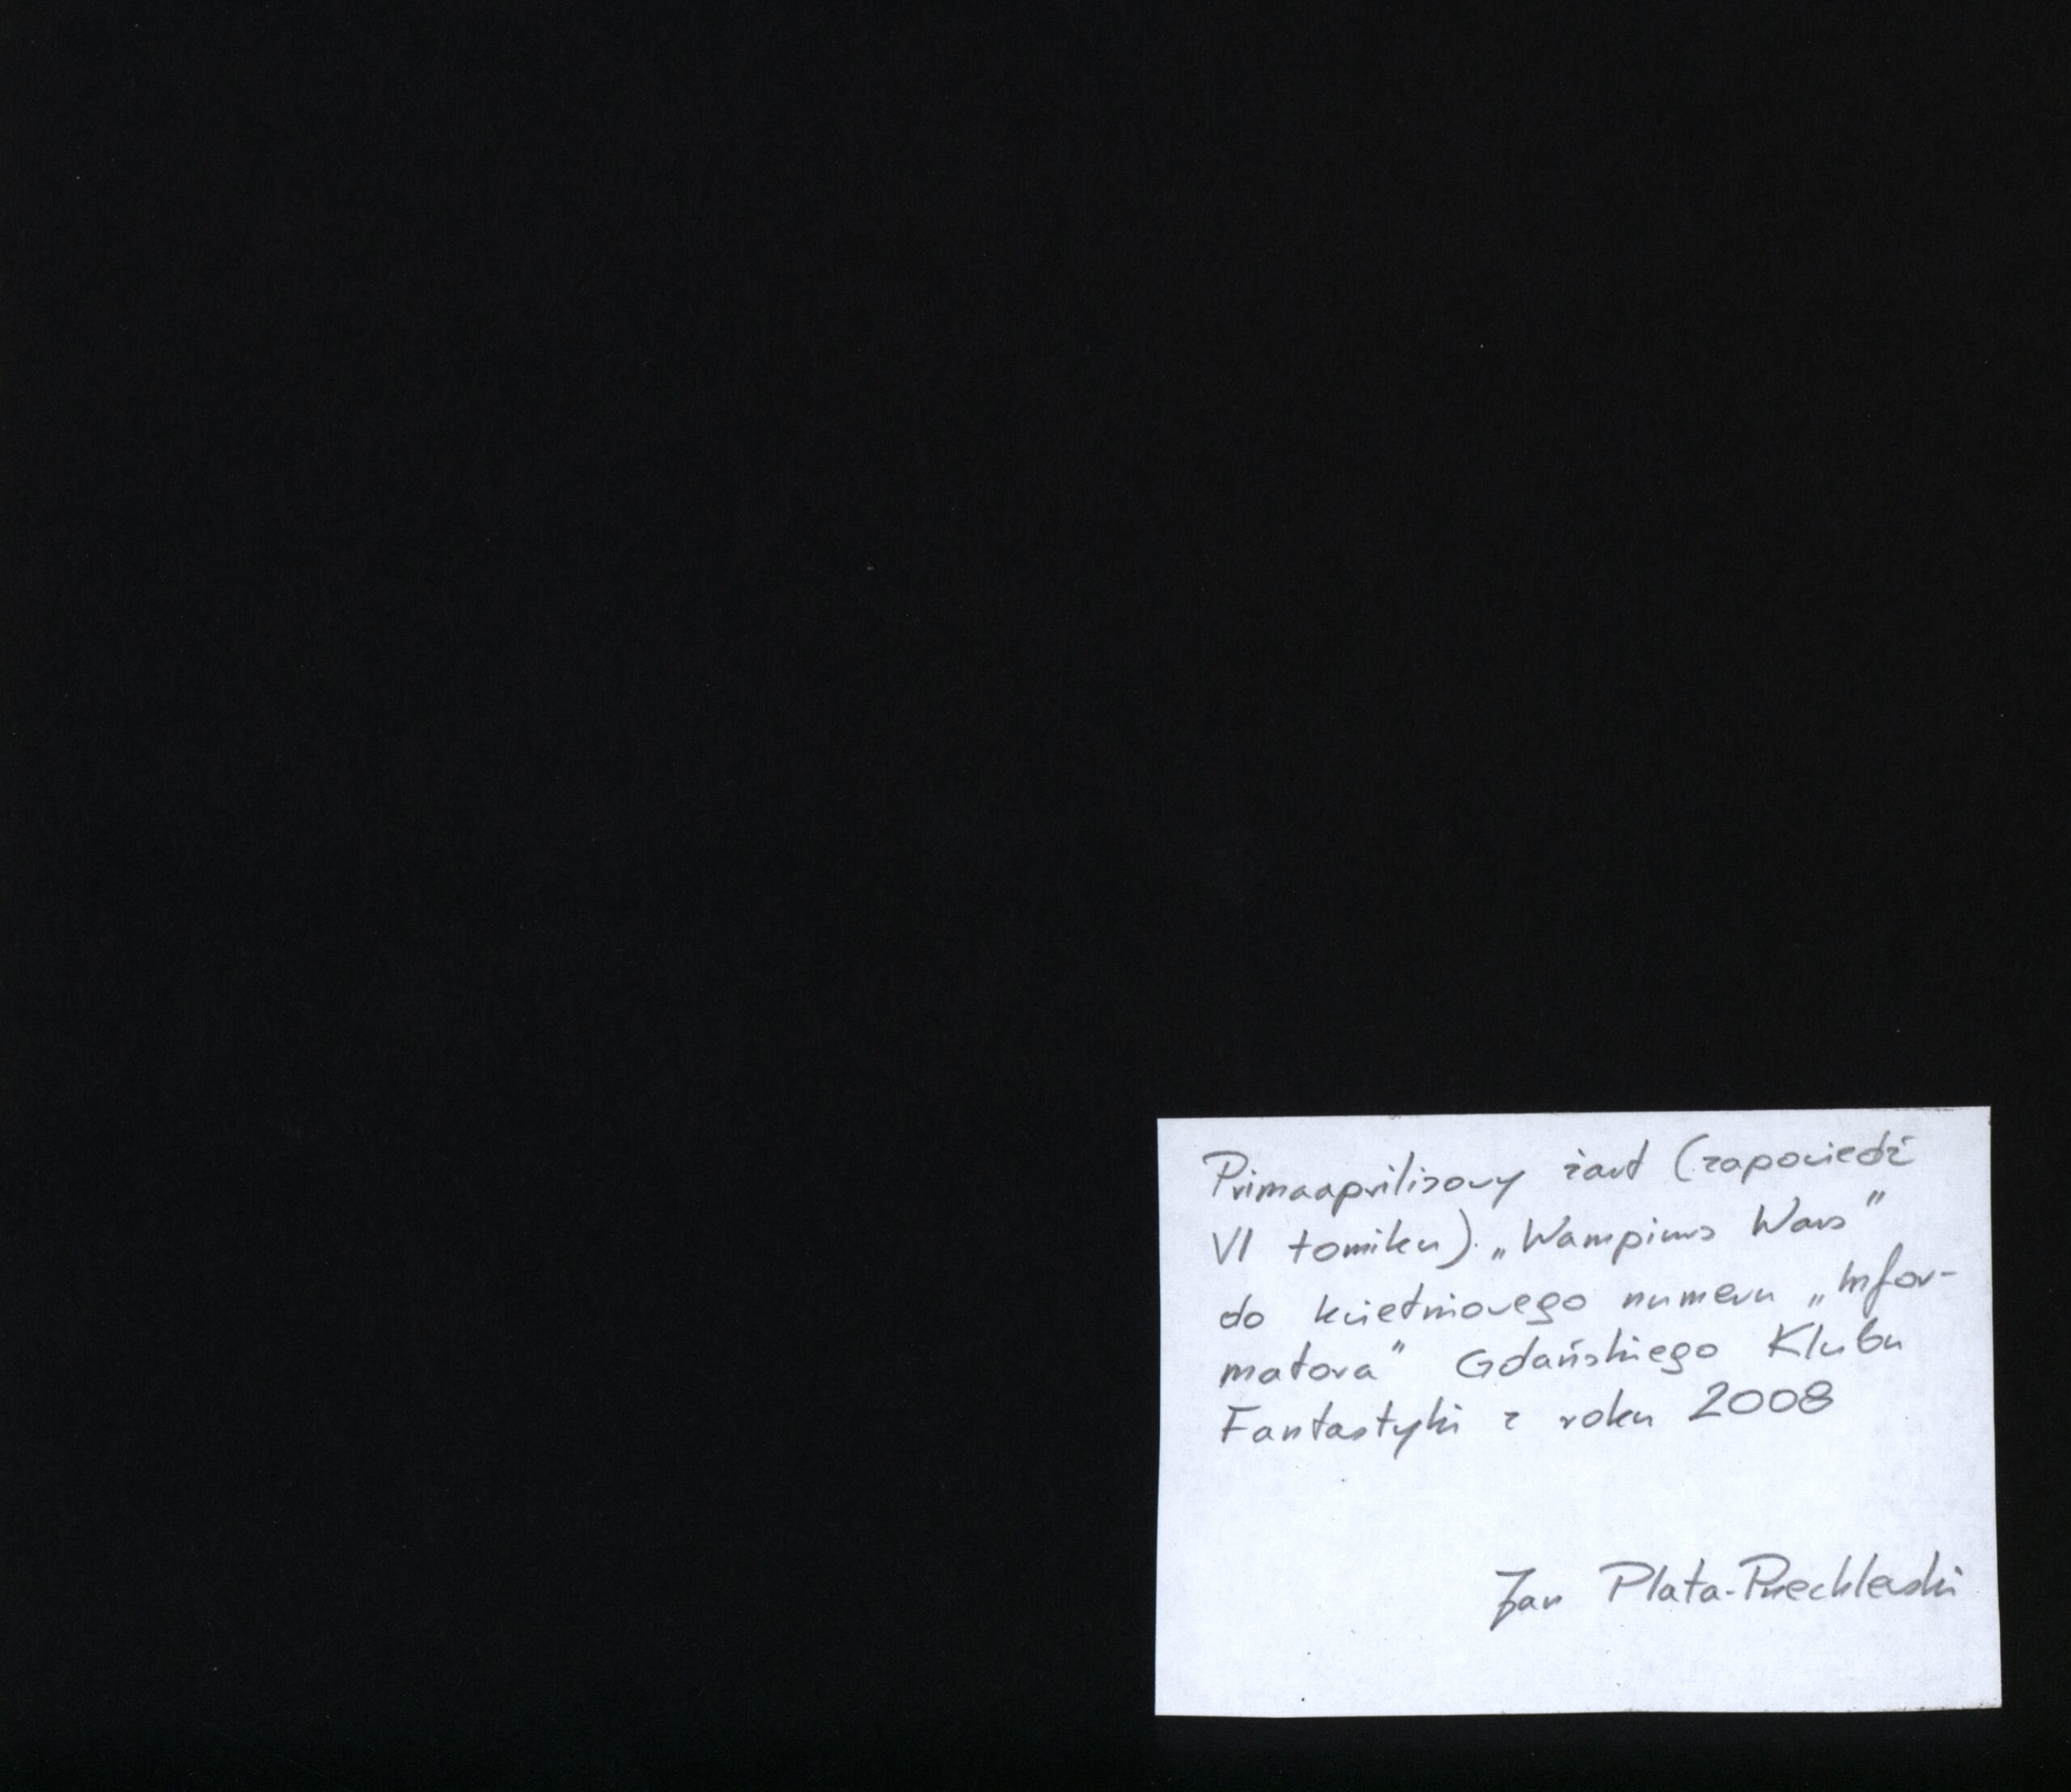 Primaaprilisowy żart (zapowiedź
VI tomiku) „Wampiurs Wars”
do kwietniowego numeru „Infor-
matora” Gdańskiego Klubu
Fantastyki z roku 2008
Jan Plata-Przechlewski